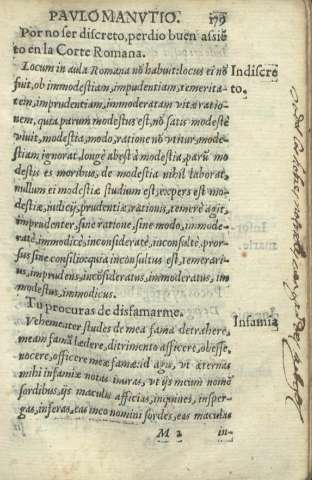 PAVLO MANVTIO. 179
Por no ser discreto, perdio buen assiē
to en la Corte Romana.
Locum in aula Romana nō habuit: locus ei nō Indiscre
fuit, ob immodestiam, impudentiam, temerita to.
tem, imprudentiam, immoderatam vitæ ratio-
nem, quia parum modestus est, nō satis modestè
viuit, modestia, modo, ratione nō vtitur, mode-
stiam ignorat, longè abest à modestia, parū mo
destis es moribus, de modestia nihil laborat,
nullum ei modestiæ studium est, expers est mo-
destiæ, iudicij, prudentiæ, rationis, temerè agit,
imprudenter, sine ratione, sine modo, immode-
ratè, immodicè, inconsideratè, inconsultè, pror-
sus sine consilio: quia inconsultus est, temerari-
us, imprudens, incōsideratus, immoderatus, im
modestus, immodicus.
Tu procuras de disfamarme. Infamia
Vehementer studes de mea famā detrahere,
meam famā lædere, ditrimento afficere, obesse,
nocere, officere meæ famæ: id agis, vt æternas
mihi infamiæ notas inuras, vt ijs meum nomē
sordibus, ijs maculis afficias, inquines, insper-
gas, inferas, eas in eo nomini sordes, eas maculas
M 2 in-